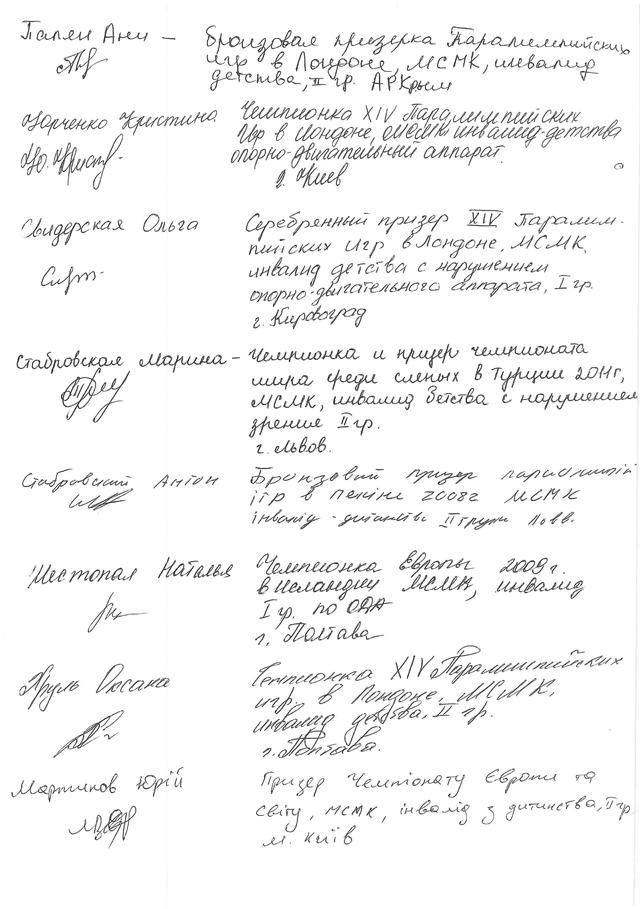 Папян Ани – бронзовая призерка Паралимпийских
игр в Лондоне, МСМК, инвалид
детства, II гр. АРКрым
Юрченко Кристина Чемпионка XIV Паралимпийских
Игр в Лондоне, МСМК инвалид-детства
опорно-двигательный аппарат.
г. Киев
Свидерская Ольга Серебренный призер XIV Паралим-
пийских Игр в Лондоне, МСМК,
инвалид детства с нарушением
опорно-двигательного аппарата, I гр.
г. Кировоград
Стабровская Марина – Чемпионка и призер чемпионата
мира среди слепых в Турции 2011г,
МСМК, инвалид детства с нарушением
зрения II гр.
г. Львов.
Стабровский Антон Бронзовий призер
ігр в Пекіні 2008г МСМК
інвалід - дитинства II групи
Шестопал Наталья Чемпионка Европы 2009 г.
в Исландии МСМК, инвалид
I гр. по ОДА
г. Полтава
Хруль Оксана Чемпионка XIV Паралимпийских
игр, в Лондоне, МСМК,
инвалид детства, II гр.
г. Полтава.
Мартинов Юрій Призер Чемпіонату Європи та
світу, МСМК, інвалід з дитинства, II гр
м. Київ